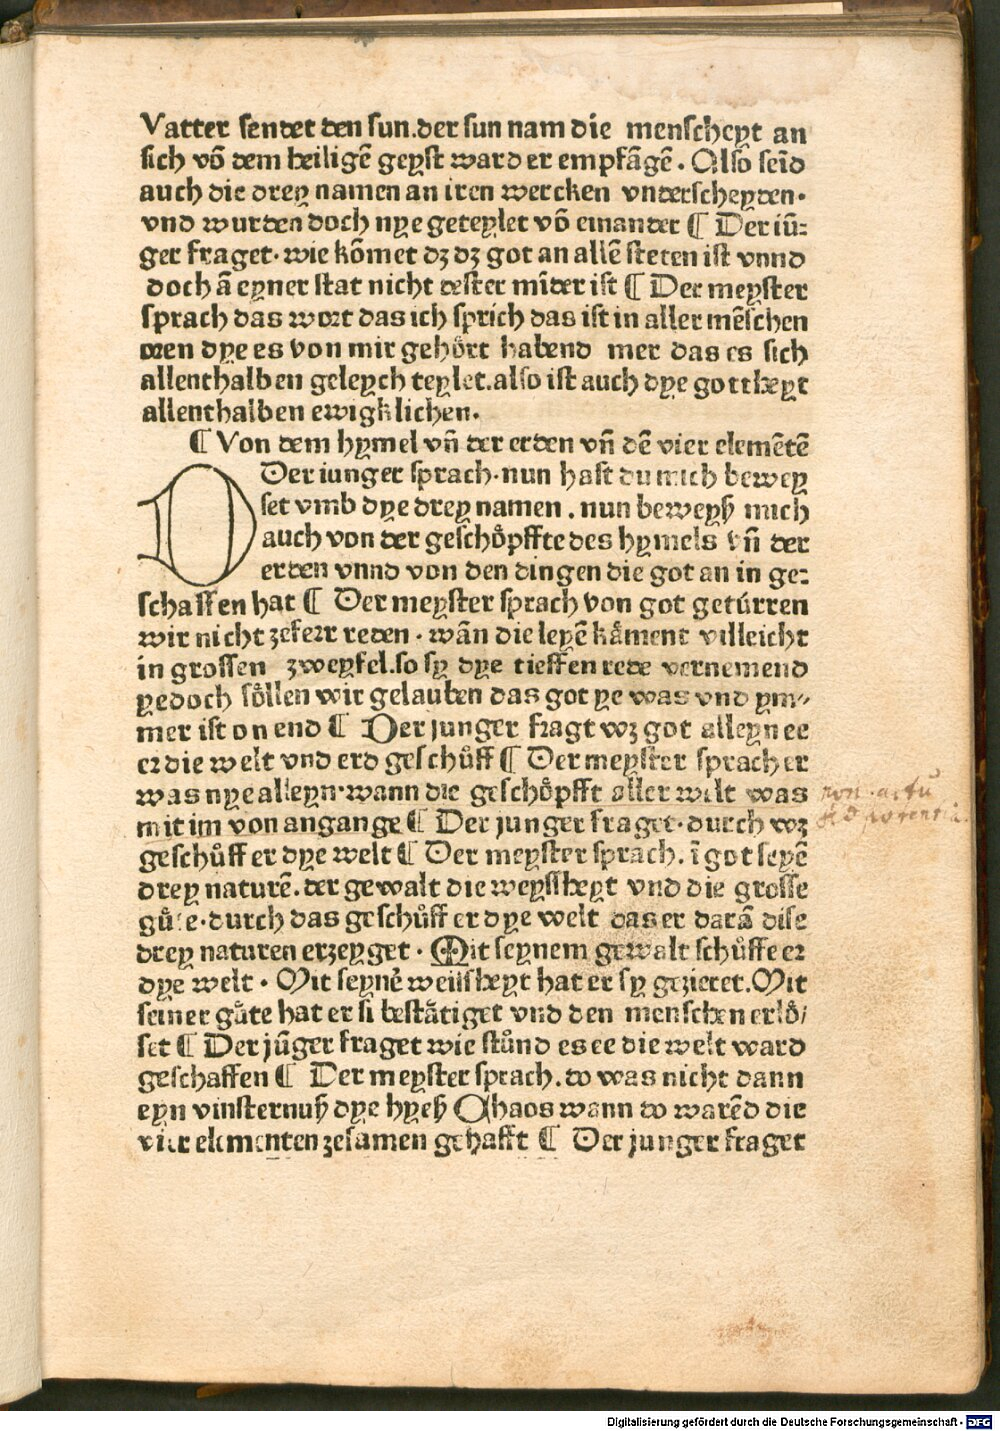 Vatter sendet den sun.der sun nam die menscheyt an
sich vō dem heiligē geyst ward er empfāgē. Also seīd
auch die drey namen an iren wercken vnderscheyden.
vnd wurden doch nye geteylet vō einander ¶ Der iū⸗
ger fraget.wie kōmet dz dz got an allē steten ist vnnd
doch ā eyner stat nicht dester mīder ist ¶ Der meyster
sprach das wort das ich sprich das ist in aller mēschen
oren dye es von mir gehört habend mer das es sich
allenthalben geleych teylet.also ist auch dye gottheyt
allenthalben ewigklichen.
¶ Von dem hymel vñ der erden vñ dē vier elemētē
Der iunger sprach.nun hast du mich bewey
set vmb dye drey namen.nun beweyß mich
auch von der geschöpffte des hymels vñ der
erden vnnd von den dingen die got an in ge⸗
schaffen hat ¶ Der meyster sprach von got getürren
wir nicht zeferr reden.wān die leyē kåment villeicht
in grossen zweyfel.so sy dye tieffen rede vernemend
yedoch söllen wir gelauben das got ye was vnd ym⸗
mer ist on end ¶ Der junger fragt wz got alleyn ee
er die welt vnd erd geschůff ¶ Der meyster sprach er
was nye alleyn.wann die geschöpfft aller welt was
mit im von angange ¶ Der junger fraget.durch wz
geschůff er dye welt ¶ Der meyster sprach.ī got seyē
drey naturē.der gewalt die weyßheyt vnd die grosse
gůte.durch das geschůff er dye welt das er darā dise
drey naturen erzeyget. Mit seynem gewalt schůffe er
dye welt. Mit seynē weißheyt hat er sy gezieret.Mit
seiner gůte hat er si bestätiget vnd den menschen erlö/
set ¶ Der jūger fraget wie stůnd es ee die welt ward
geschaffen ¶ Der meyster sprach.do was nicht dann
eyn vinsternuß dye hyeß Chaos wann do warēd die
vier elementen zesamen gehafft ¶ Der junger fraget
non actu
sed potentia.
Digitalisierung gefördert durch die Deutsche Forschungsgemeinschaft - DFG